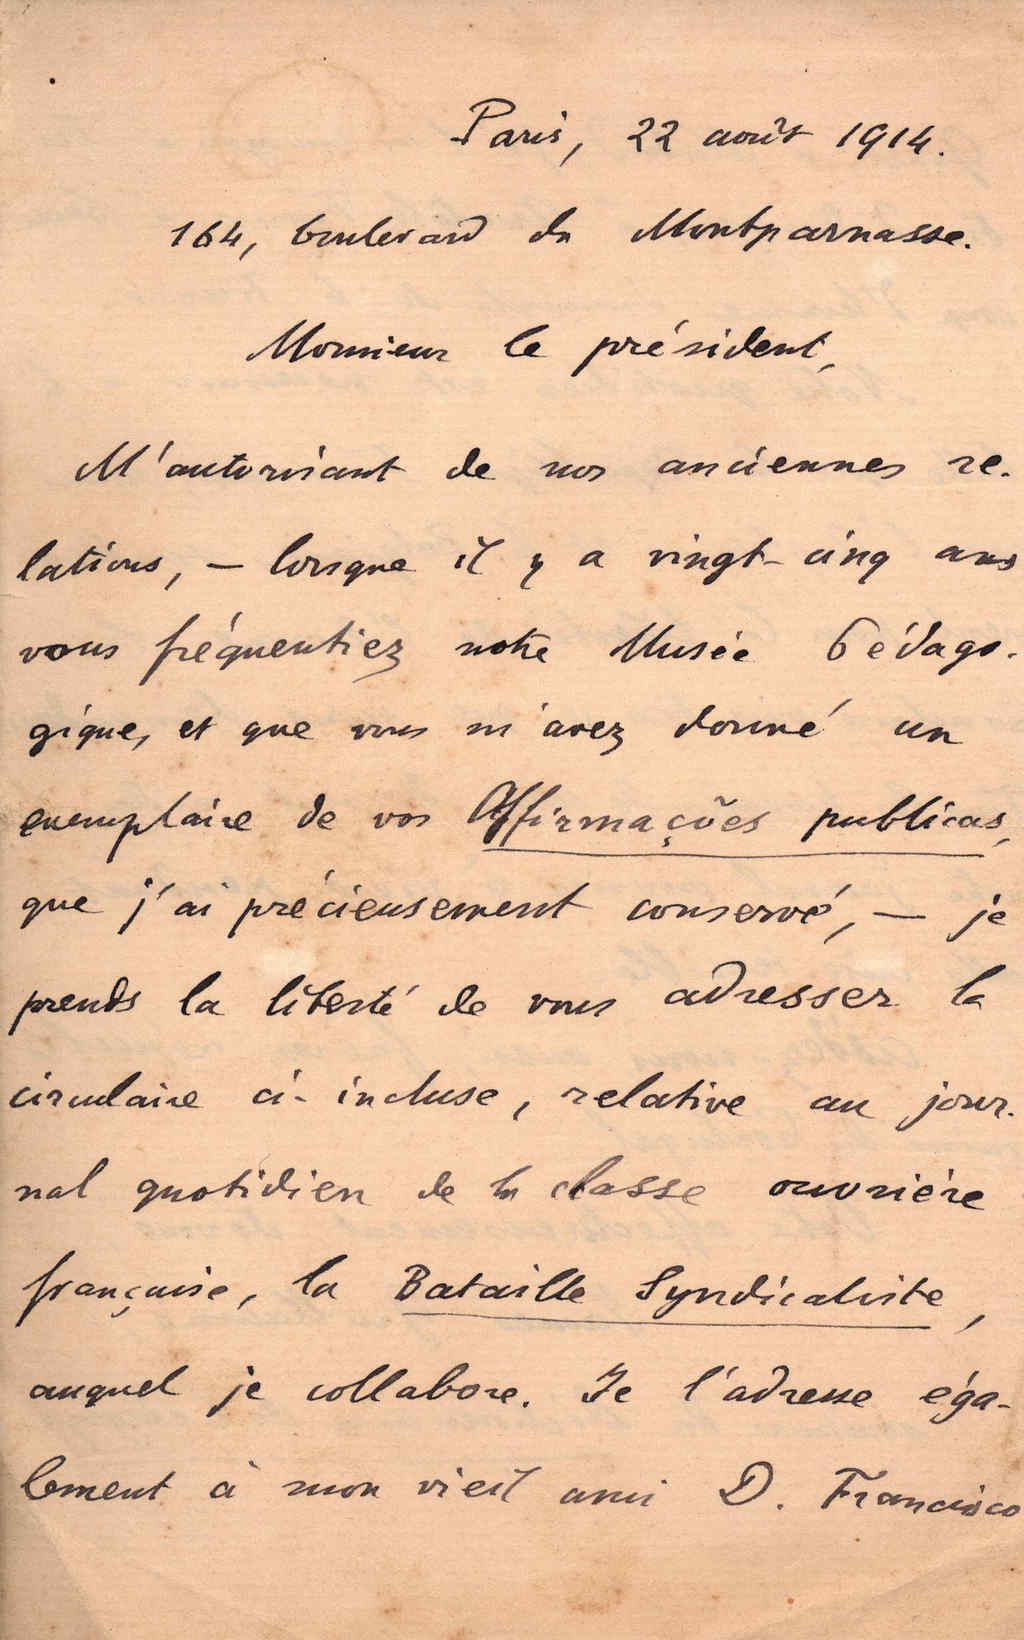 Paris, 22 août 1914.
164, boulevard du Montparnasse.
Monsieur le président,
M'autorisant de nos anciennes re-
lations, — lorsque il y a vingt-cinq ans
vous fréquentiez notre Musée Pédago-
gique, et que vous m'avez donné un
exemplaire de vos Affirmações publicas,
que j'ai précieusement conservé, — je
prends la liberté de vous adresser la
circulaire ci-incluse, relative au jour-
nal quotidien de la classe ouvrière
française, la Bataille Syndicaliste,
auquel je collabore. Je l'adresse éga-
lement à mon vieil ami D. Francisco